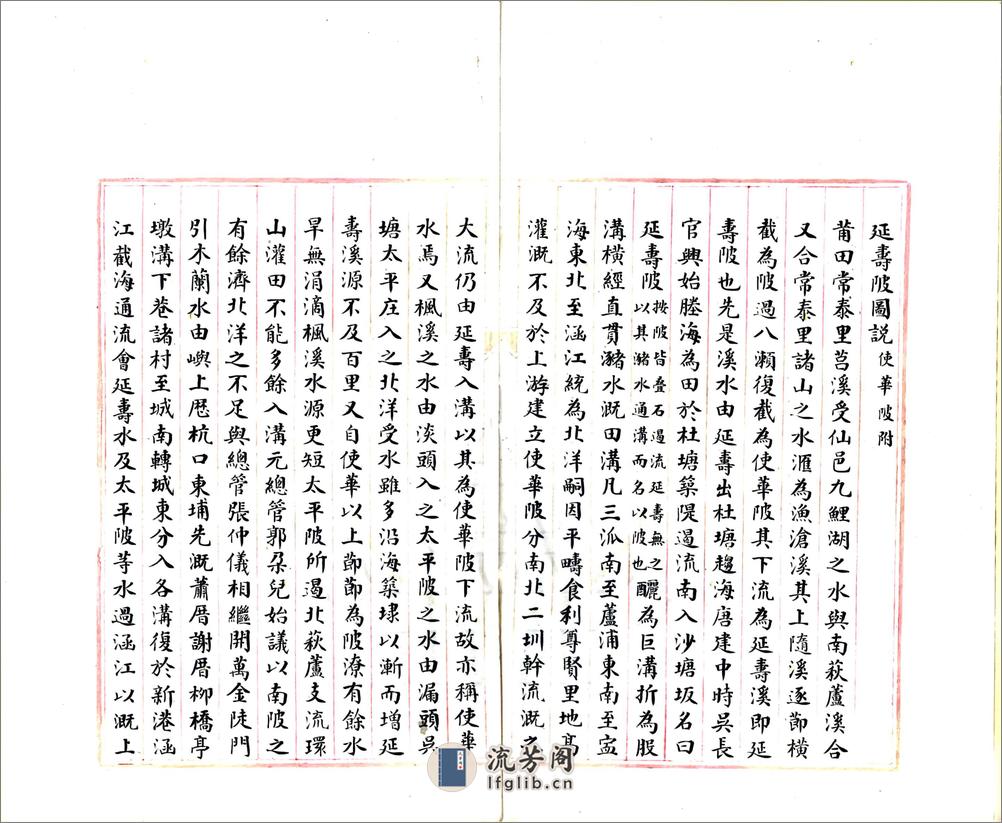 延壽陂圖説使華陂附
莆田常泰里莒溪受仙邑九鯉湖之水與南萩蘆溪合
又合常泰里諸山之水滙為漁滄溪其上隨溪逐節橫
截為陂過八瀬復截為使華陂其下流為延壽溪即延
壽陂也先是溪水由延壽出杜塘趨海唐建中時吳長
官興始塍海為田於杜塘築隄遏流南入沙塘坂名曰
延壽陂按陂皆叠石遏流延壽無之以其瀦水通溝而名以陂也釃為巨溝折為股
溝橫經直貫瀦水溉田溝凡三派南至蘆浦東南至寍
海東北至涵江統為北洋嗣因平疇食利尊賢里地高
灌溉不及於上游建立使華陂分南北二圳幹流溉之
大流仍由延壽入溝以其為使華陂下流故亦稱使華
水焉又楓溪之水由淡頭入之太平陂之水由漏頭吳
塘太平庄入之北洋受水雖多沿海築埭以漸而增延
壽溪源不及百里又自使華以上節節為陂潦有餘水
旱無涓滴楓溪水源更短太平陂所遏北萩蘆支流環
山灌田不能多餘入溝元總管郭朶兒始議以南陂之
有餘濟北洋之不足與總管張仲儀相繼開萬金陡門
引木蘭水由嶼上厯杭口東埔先溉蕭厝謝厝栁橋亭
墩溝下巷諸村至城南轉城東分入各溝復於新港涵
江截海通流會延壽水及太平陂等水過涵江以溉上
流芳阁
lfglib.cn